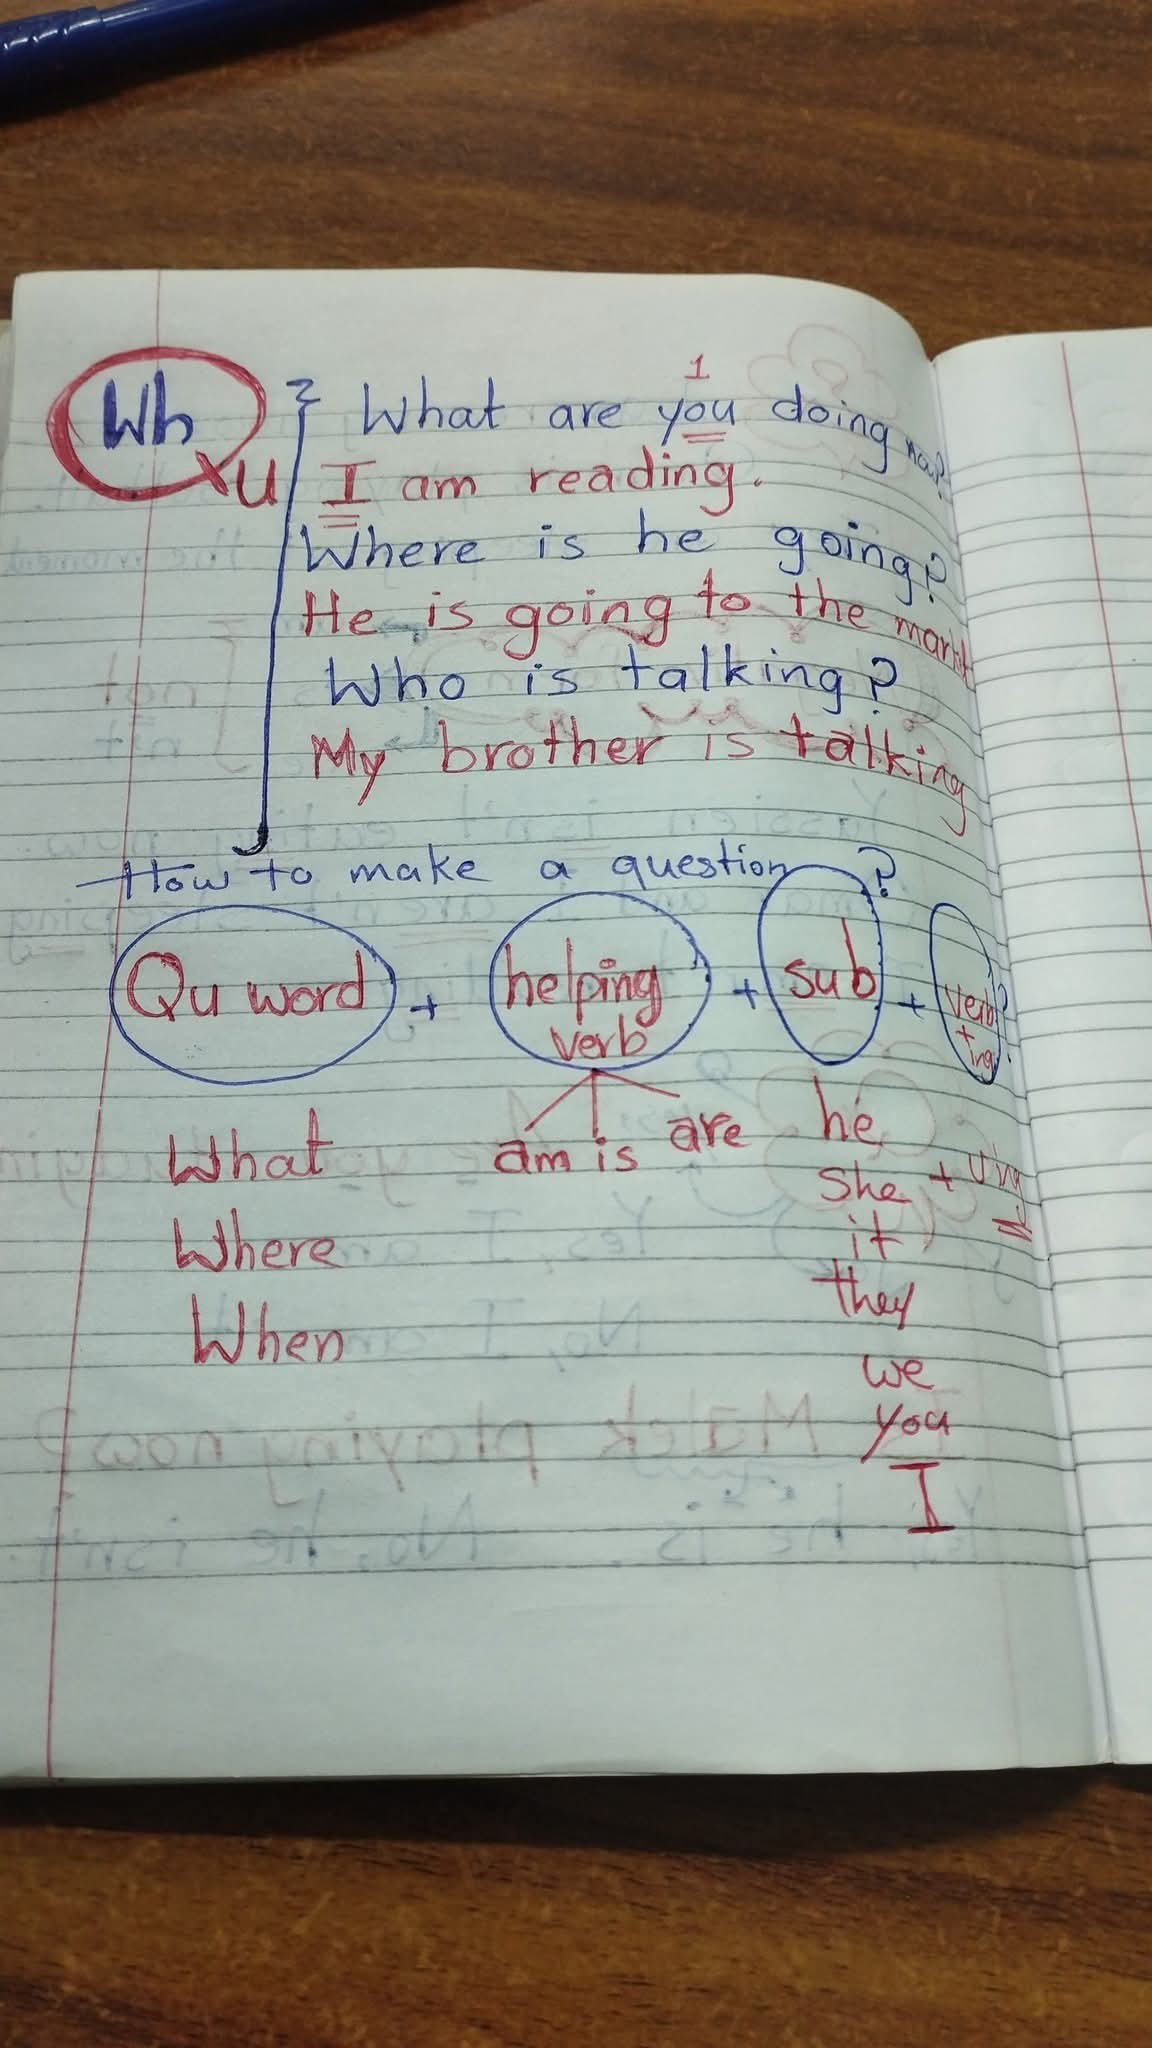 Wh
Qu
1
What are you doing now?
I am reading.
Where is he going?
He is going to the market
Who is talking?
My brother is talking
How to make a question?
Qu word + helping verb + sub + verb + ing?
What am is are he
Where she + Ving
When it
they
we
you
I